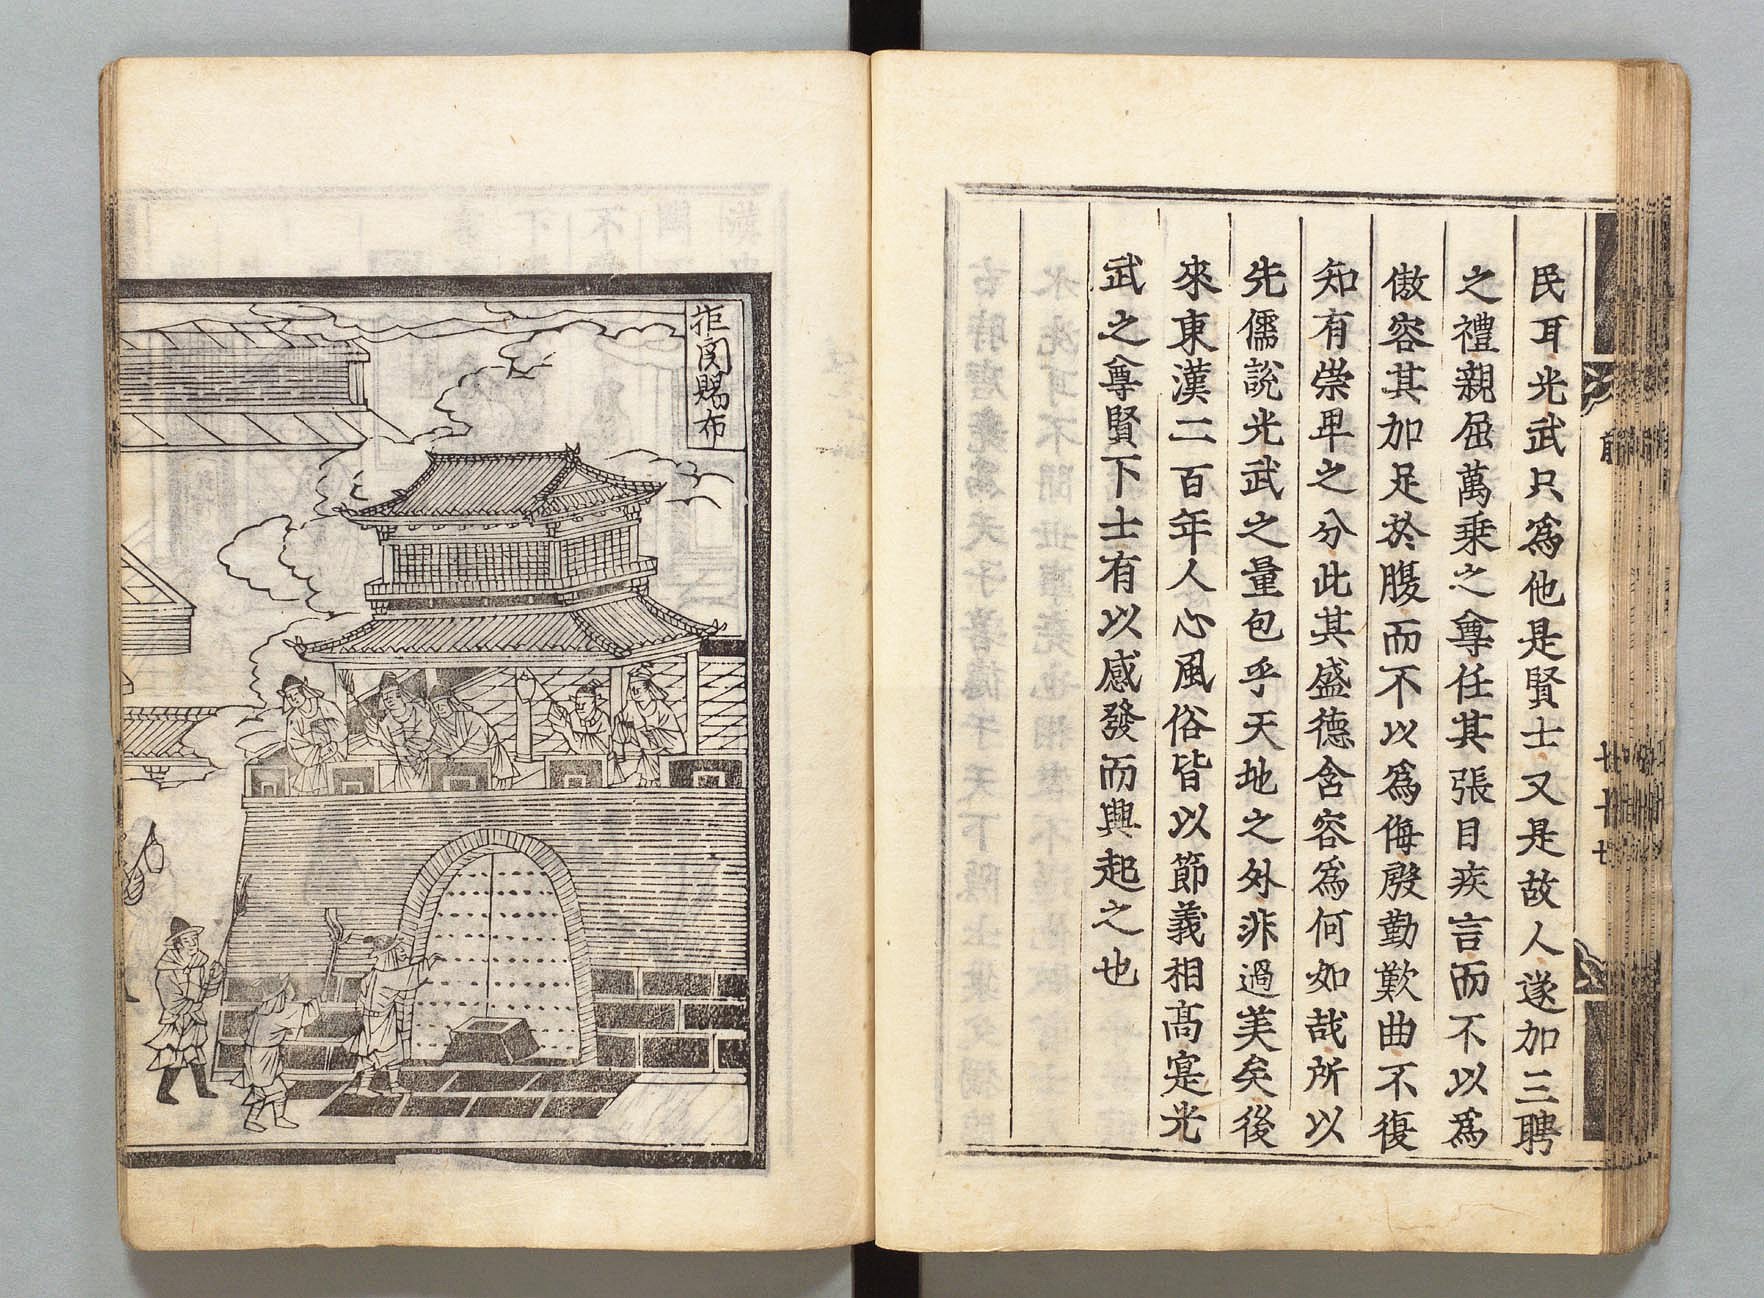 民耳光武只爲他是賢士又是故人遂加三聘
之禮親屈萬乗之尊任其張目疾言而不以爲
傲容其加足於腹而不以爲侮殷勤歎曲不復
知有崇卑之分此其盛德含容爲何如哉所以
先儒說光武之量包乎天地之外非過美矣後
來東漢二百年人心風俗皆以節義相髙寔光
武之尊賢下士有以感發而興起之也
拒関賜布